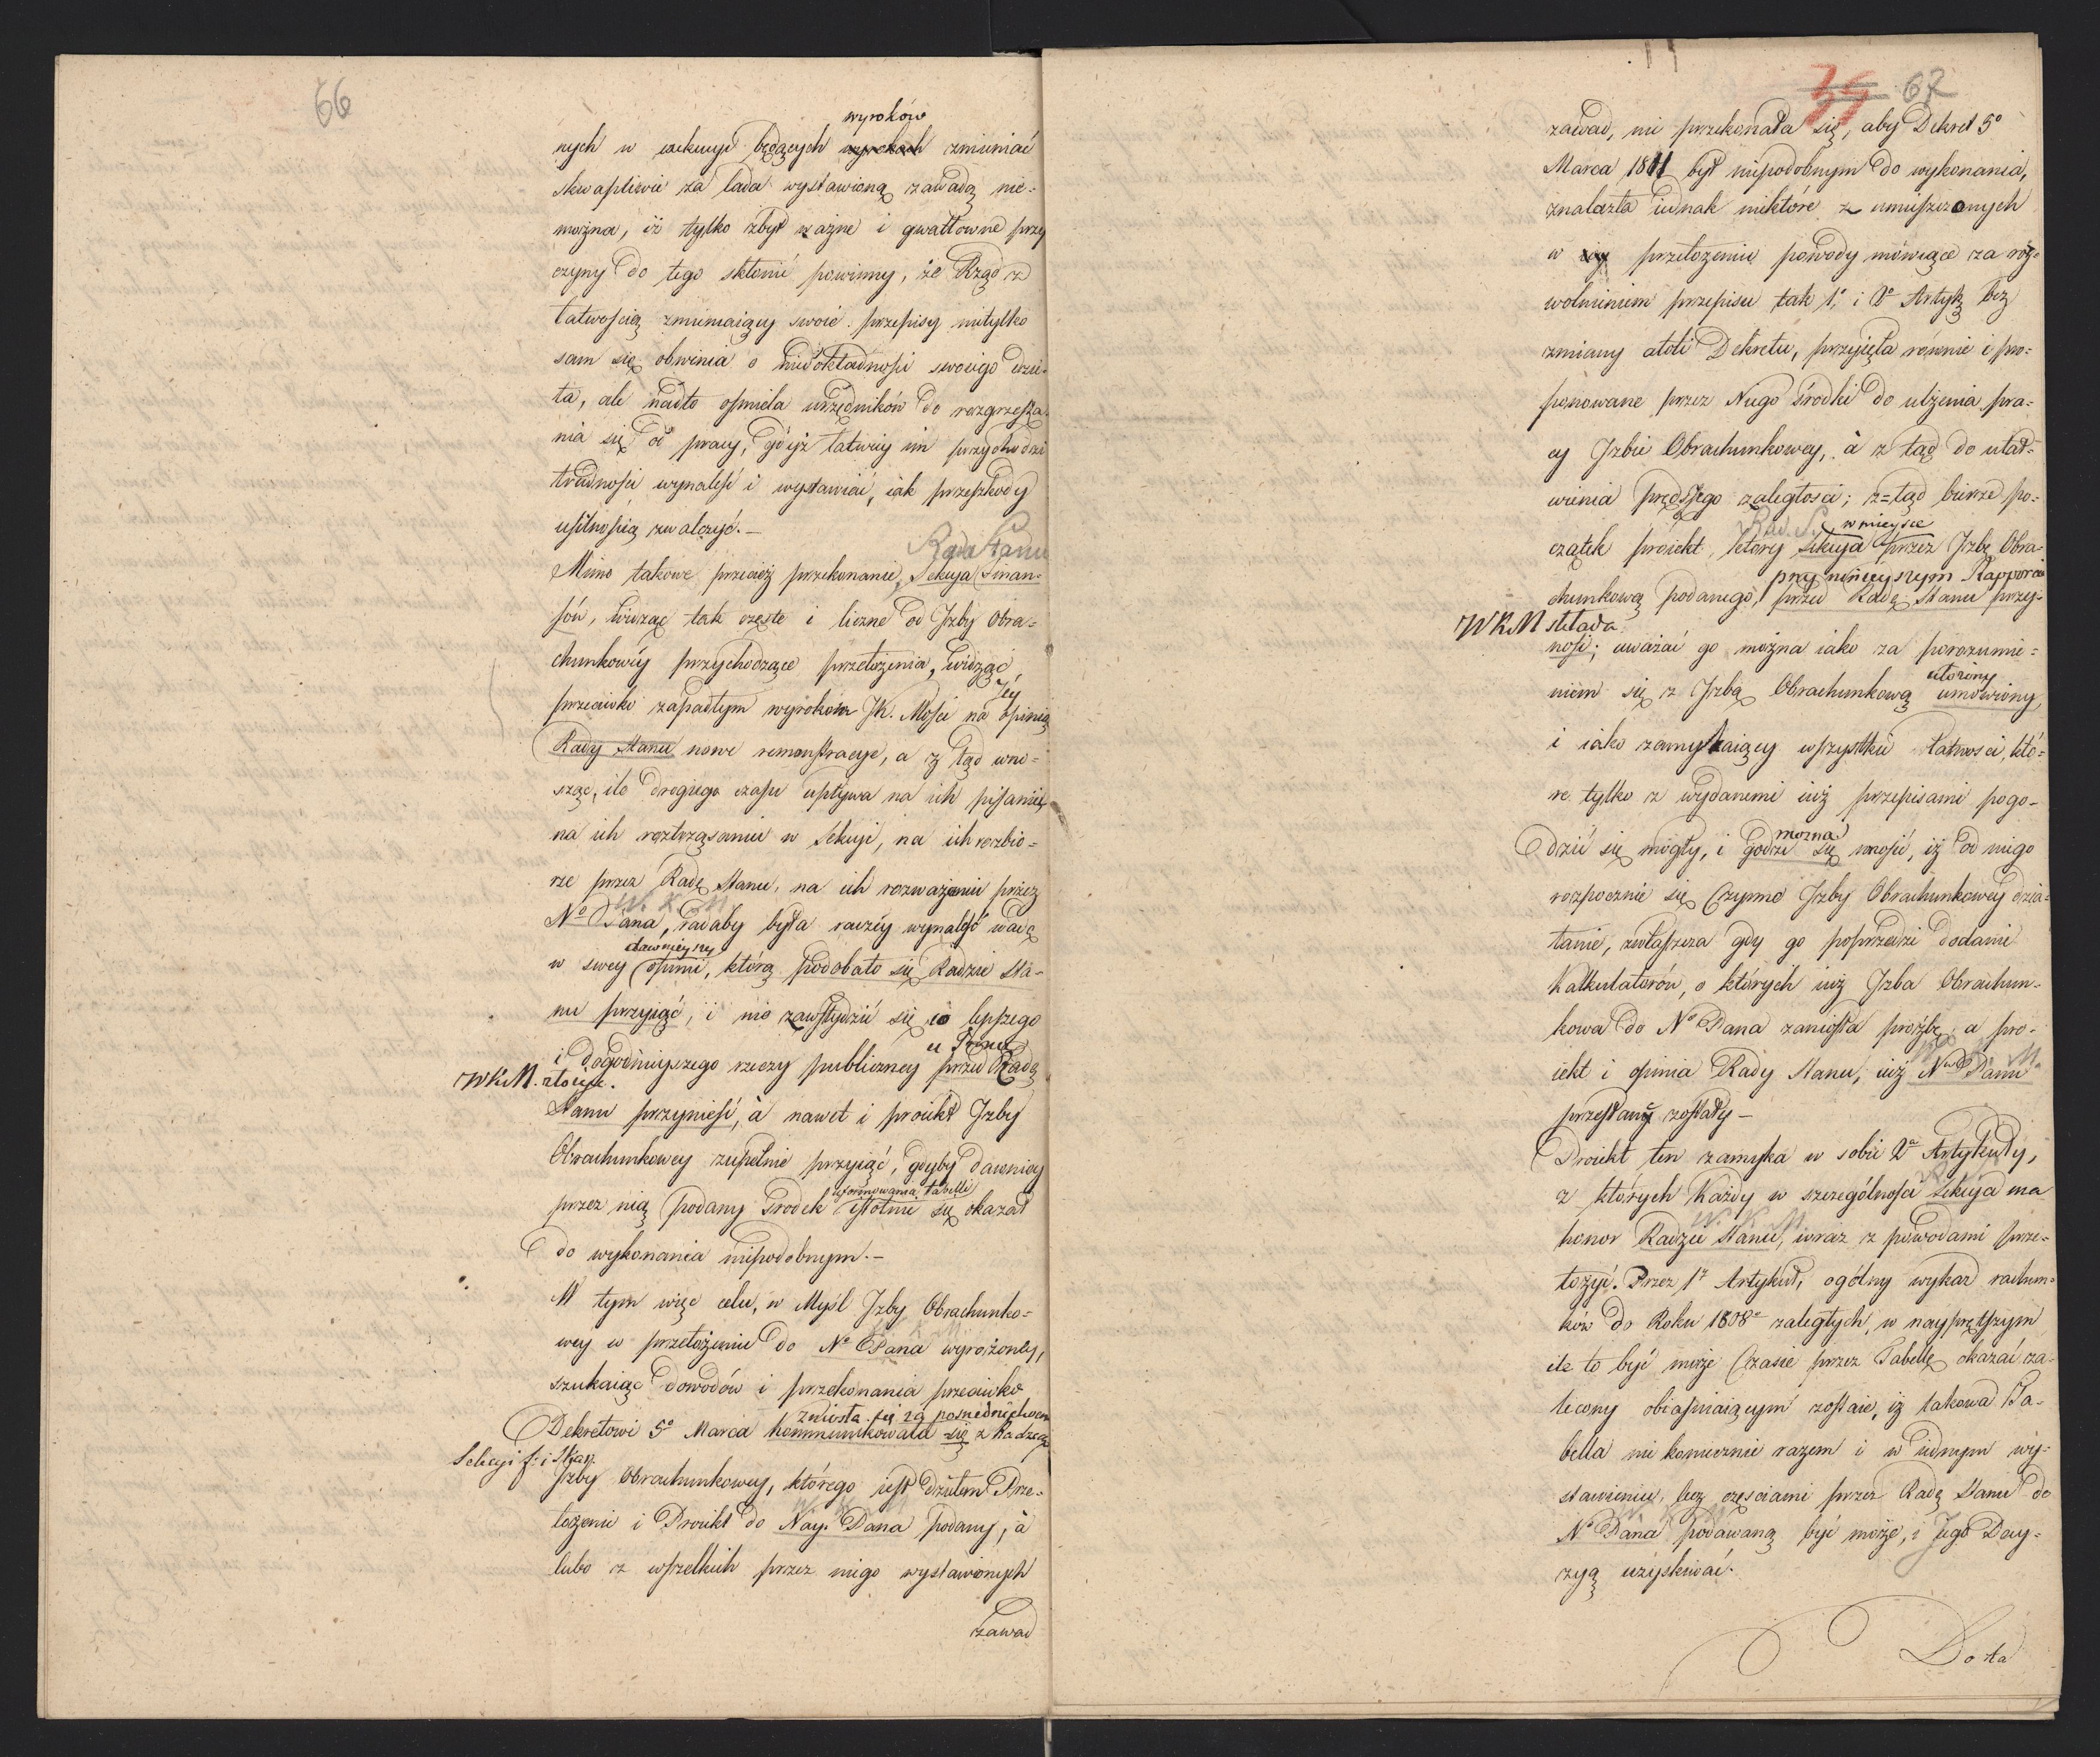 66
wyroków
nych w exekucyi będących wyrokach zmieniać
skwapliwie za lada wystawioną zawadą nie=
można, iż tylko zbyt ważne i gwałtowne przy
czyny do tego skłonić powinny, że Rząd z
łatwością zmieniaiący swoie przepisy nietylko
sam się obwinia o niedokładności swoiego dzie=
ła, ale nadto ośmiela urzędników do rozgrzesza=
nia się od pracy, gdyż łatwiey im przychodzi
trudności wynaleść i wystawiać, iak przeszkody
usilnością zwalczyć.—
Rada Stanu
Mimo takowe przecież przekonanie, Sekcya Finan=
sów, widząc tak częste i liczne od Jzby Obra=
chunkowéy przychodzące przełożenia, widząc
Jéy
przeciwko zapadłym wyrokom JK. Mości na opinią
Rady Stanu nowe remonstracye, a z tąd wno=
sząc, ile drogiego czasu upływa na ich pisanie,
na ich roztrząsaniu w Sekcyi, na ich rozbio=
rze przez Radę Stanu, na ich rozważaniu przez
W. K. M
No Pana, radaby była raczéy wynaleść wadę
dawnieyszey
w swey opinii, którą podobało się Radzie Sta=
nu przyiąć, i nie zawstydzić się co lepszego
u Tronu
i dogodnieyszego rzeczy publiczney przed Radą
WKM. złożyć.
Stanu przynieść, à nawet i proiekt Jzby
Obrachunkowey zupełnie przyiąć, gdyby dawniey
uformowania tabelli
przez nią podany środek istotnie się okazał
do wykonania niepodobnym.—
W tym więc celu, w Myśl Jzby Obrachunko=
wey w przełożeniu do No Pana wyrażoney,
szukaiąc dowodów i przekonania przeciwko
zniosła się za pośrednictwem
Dekretowi 5o Marca kommunikowała się z Radzcą
Sekcyi f. i Skar.
Jzby Obrachunkowey, którego iest dziełem Prze=
łożenie i Proiekt do Nay. Pana podany, à
lubo z wszelkich przez niego wystawionych
zawad
35 67
zawad, nie przekonała się, aby Dekret 5o
Marca 1811 był niepodobnym do wykonania,
znalazła iednak niektóre z umieszczonych
w przełożeniu powody mówiące za roz=
wolnieniem przepisu tak 1o i 2o Artyk. bez
zmiany atoli Dekretu, przyięła równie i pro=
ponowane przez Niego środki do ulżenia pra=
cy Jzbie Obrachunkowey, à z tąd do ułat=
wienia prędszego zaległości; z=tąd bierze po=
Rad. S. w mieysce
czątek proiekt, który Sekcya przez Jzbę Obra=
przy ninieyszym Rapporcie
chunkową podanego, przed Radę Stanu przy=
WKM składa
nosi; uważać go można iako za porozumie=
ułożony
niem się z Jzbą Obrachunkową umówiony,
i iako zamykaiący wszystkie łatwości, któ=
re tylko z wydanemi iuż przepisami pogo=
można
dzić się mogły, i godzi się wnosić, iż od niego
rozpocznie się czynne Jzby Obrachunkowey dzia=
łanie, zwłaszcza gdy go poprzedzi dodanie
Kalkulatorów, o których iuż Jzba Obrachun=
kowa do No Pana zaniosła proźbę, a pro=
W. K. M.
iekt i opinia Rady Stanu, iuż Nu Panu
przesłany zostały—
Proiekt ten zamyka w sobie 2a Artykuły,
z których Każdy w szczególności Sekcya ma
W. K. M
honor Radzie Stanu, wraz z powodami prze=
łożyć. Przez 1y Artykuł, ogólny wykaz rachun=
ków do Roku 1808o zaległych, w nayprętszym
ile to być może czasie przez Tabellę okazać za=
lecony obiaśniaiącym zostaie, iż takowa Ta=
bella nie koniecznie razem i w iednym wy=
stawieniu, lecz częściami przez Radę Stanu do
No Pana podawaną być może, i Jego Decy=
zyą uzyskiwać.
Do tła